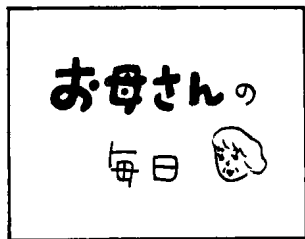 お母さんの
毎日